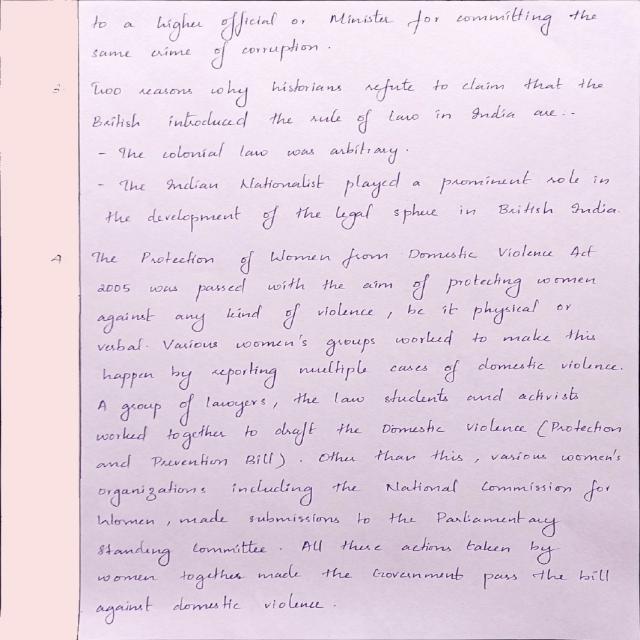 to a higher official or Minister for committing the
same crime of corruption.
3. Two reasons why historians refute to claim that the
British introduced the rule of law in India are:-
- The colonial law was arbitrary.
- The Indian Nationalist played a prominent role in
the development of the legal sphere in British India.
4 The Protection of Women from Domestic Violence Act
2005 was passed with the aim of protecting women
against any kind of violence, be it physical or
verbal. Various women's groups worked to make this
happen by reporting multiple cases of domestic violence.
A group of lawyers, the law students and activists
worked together to draft the Domestic violence (Protection
and Prevention Bill). Other than this, various women's
organizations including the National Commission for
Women, made submissions to the Parliamentary
Standing Committee. All these actions taken by
women together made the Government pass the bill
against domestic violence.